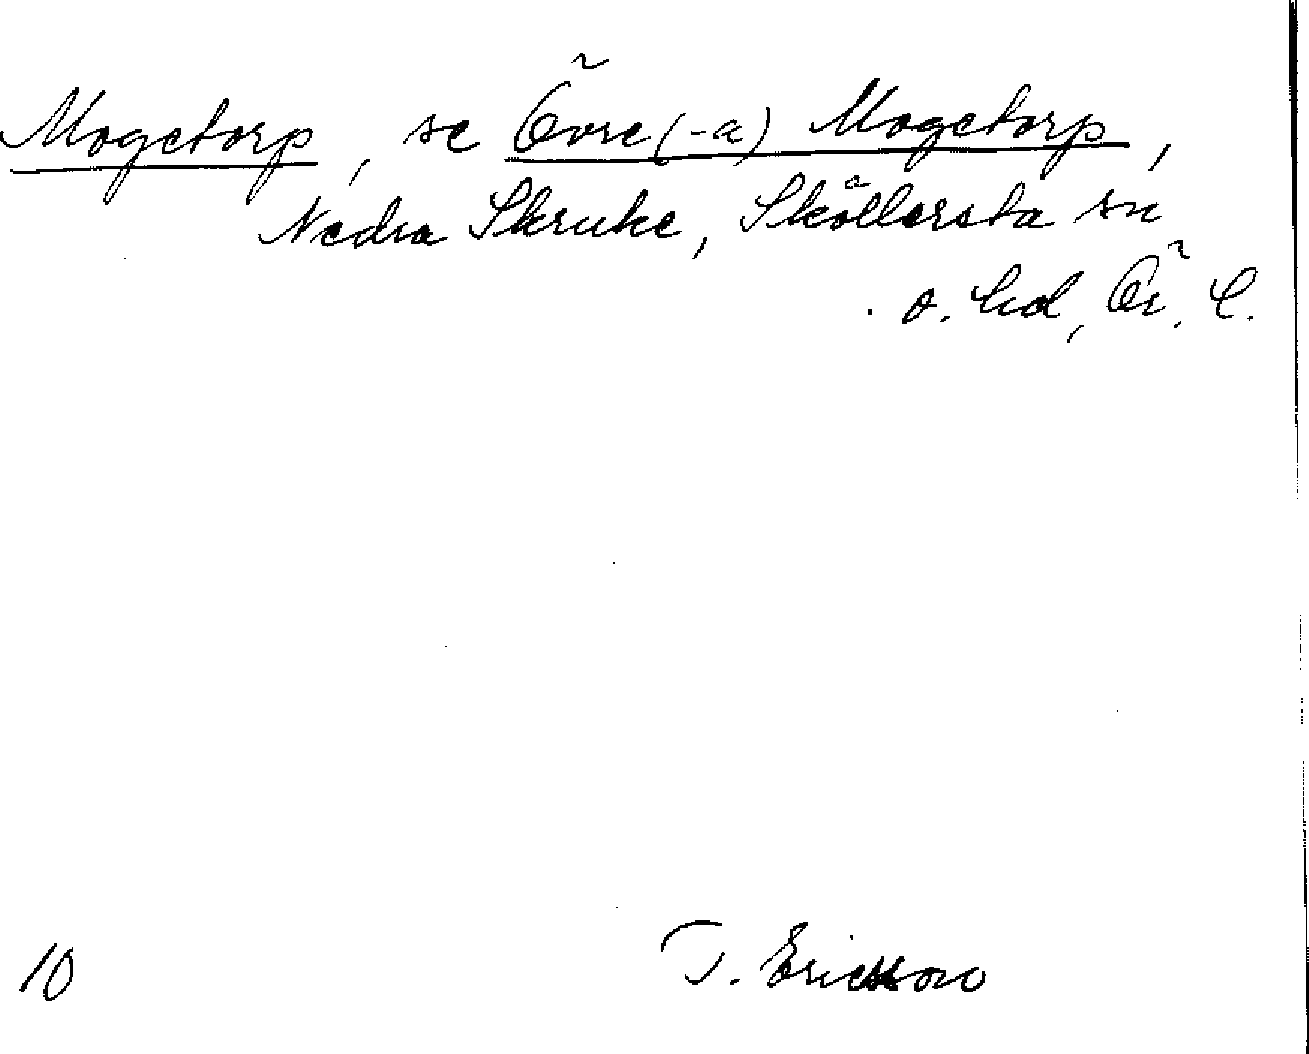 Mogetorp, se Övre(-a) Mogetorp,
Nedra Skruke, Skållersta sn
o. hd, Ör. l.
10 T. Ericsson